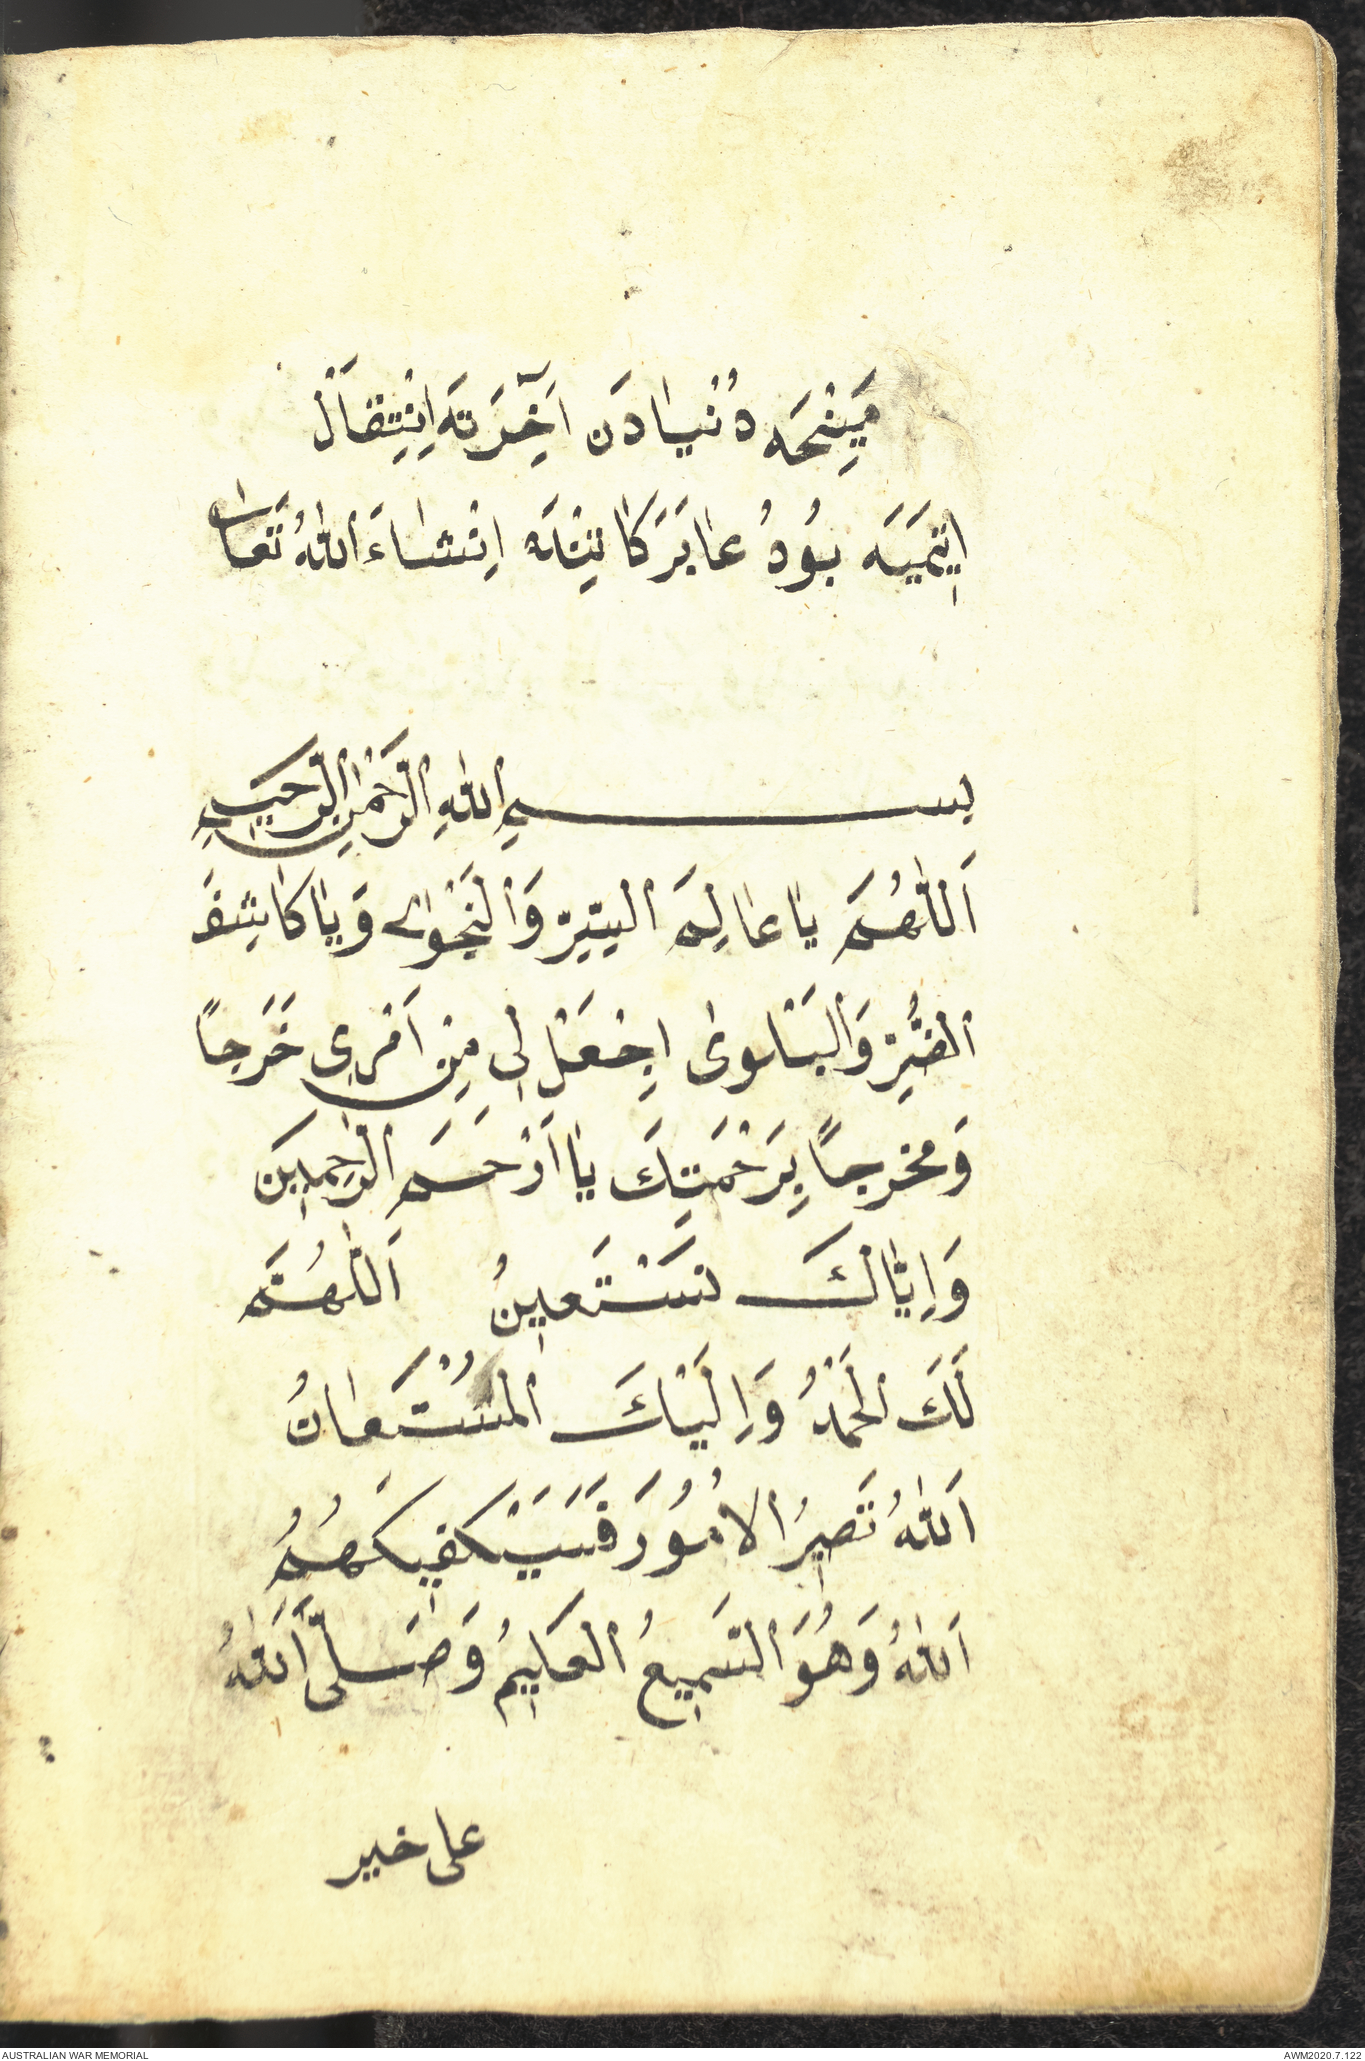 مَيِنْجَه دُنْيَادَن اَخِرَتَه اِنْتِقَالْ
اِيتمَيَه بُودُعَا بَرَكَاتِنْلَه اِنْشَاءَ اللّٰهُ تَعَالٰى
بسم اللّٰهِ الرَّحْمٰنِ الرَّحيمِ
اَللّٰهُمَّ يَا عَالِمَ السِّرِّ وَالنَّجْوٰى وَيَا كَاشِفَ
الضُّرِّ وَالْبَلْوىٰ اِجْعَلْ لِى مِنْ اَمْرِى فَرَجاً
وَمخرجاً بِرَحْمَتِكَ يَا اَرْحَمَ الرَّاحِمِينَ
وَاِيَّاكَ نَسْتَعِينُ اَللّٰهُمَّ
لَكَ الْحَمْدُ وَاِلَيْكَ الْمُسْتَعَانُ
اَللّٰهُ تَصِيرُ الْاُمُورَ فَسَيَكْفِيكَهُمُ
اَللّٰهُ وَهُوَ السَّمِيعُ الْعَلِيمُ وَصَلَّى اَللّٰهُ
على خير
AUSTRALIAN WAR MEMORIAL
AWM2020.7.122